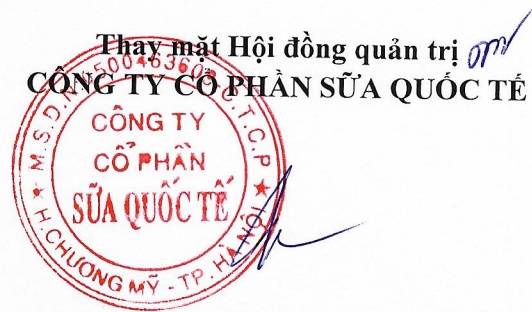 Thay mặt Hội đồng quản trị
CÔNG TY CỔ PHẦN SỮA QUỐC TẾ
CÔNG TY
CỔ PHẦN
SỮA QUỐC TẾ
H.CHƯƠNG MỸ - TP. HÀ NỘI